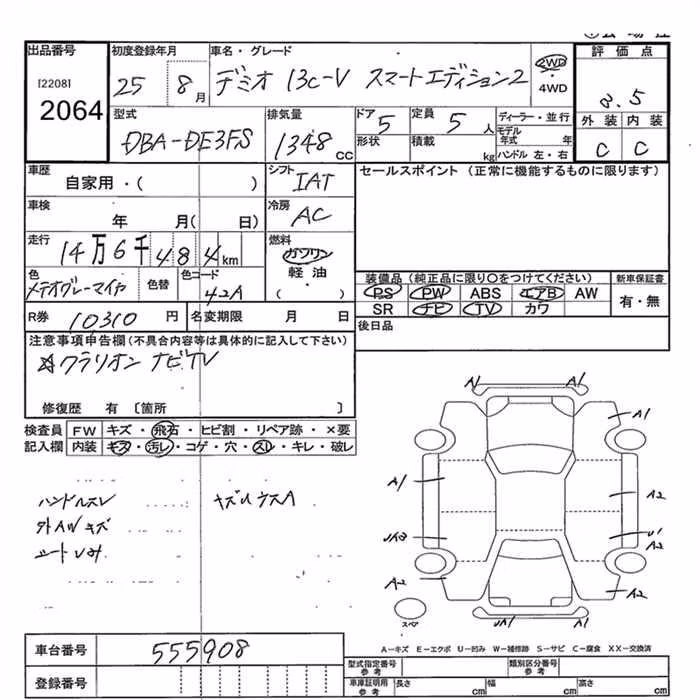 出品番号 初度登録年月 車名・グレード 評価点
[2208] 2064
25 8月 デミオ 13C-V スマートエディション2 2WD ・ 4WD
3.5
型式 排気量 ドア 5 定員 5人 ディーラー・並行 外装 内装
DBA-DE3FS 1348cc 形状 積載 kg モデル年式 年 C C
ハンドル 左・右
車歴 シフト セールスポイント (正常に機能するものに限ります)
自家用・( ) IAT
車検 冷房
年 月( 日) AC
走行 燃料
14万6千484km ガソリン
軽油
( )
色 色替 色コード 装備品 (純正品に限り○をつけてください) 新車保証書
メテオグレーマイカ 42A PS PW ABS エアB AW 有・無
SR ナビ TV カワ
R券 10310円 名変期限 月 日 後日品
注意事項申告欄 (不具合内容等は具体的に記入して下さい)
☆クラリオン ナビTV
修復歴 有 〔箇所 〕
検査員 FW キズ・飛石・ヒビ割・リペア跡・×要
記入欄 内装 キズ・汚レ・コゲ・穴・スレ・キレ・破レ
ハンドルスレ
外AWキズ
A1 A1
A1 A1
A2
U1
A2
A2 A2
UA1 A1
スペア
A-キズ E-エクボ U-凹み W-補修跡 S-サビ C-腐食 XX-交換済
車台番号 555908
登録番号
型式指定番号 参考 類別区分番号 参考
車庫証明用 参考 長さ cm 幅 cm 高さ cm